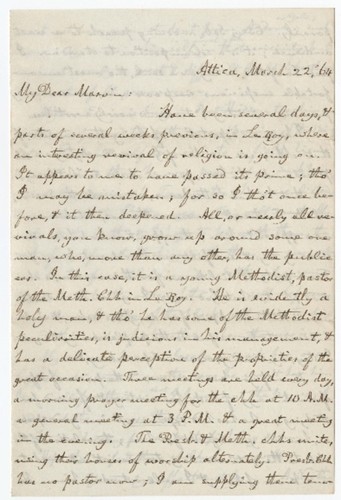 Attica, March 22, '64
My Dear Marvin:
Have been several days, &
parts of several weeks previous, in Le Roy, where
an interesting revival of religion is going on.
It appears to me to have passed its prime; tho'
I may be mistaken; for so I tho't once be-
fore, & it then deepened. All, or nearly all re-
vivals, you know, grow up around some one
man, who, more than any other, has the public
ear. In this case, it is a young Methodist, pastor
of the Meth. Chh in Le Roy. He is evidently a
holy man, & tho' he has some of the Methodist
peculiarities, is judicious in his management, &
has a delicate perception of the proprieties of the
great occasion. Three meetings are held every day,
a morning prayer meeting for the chh at 10 A.M.
a general meeting at 3 P.M. & a great meeting
in the evening. The Presb. & Meth. chhs unite,
using their houses of worship alternately. Presb. Chh
has no pastor now; I am supplying them tem-